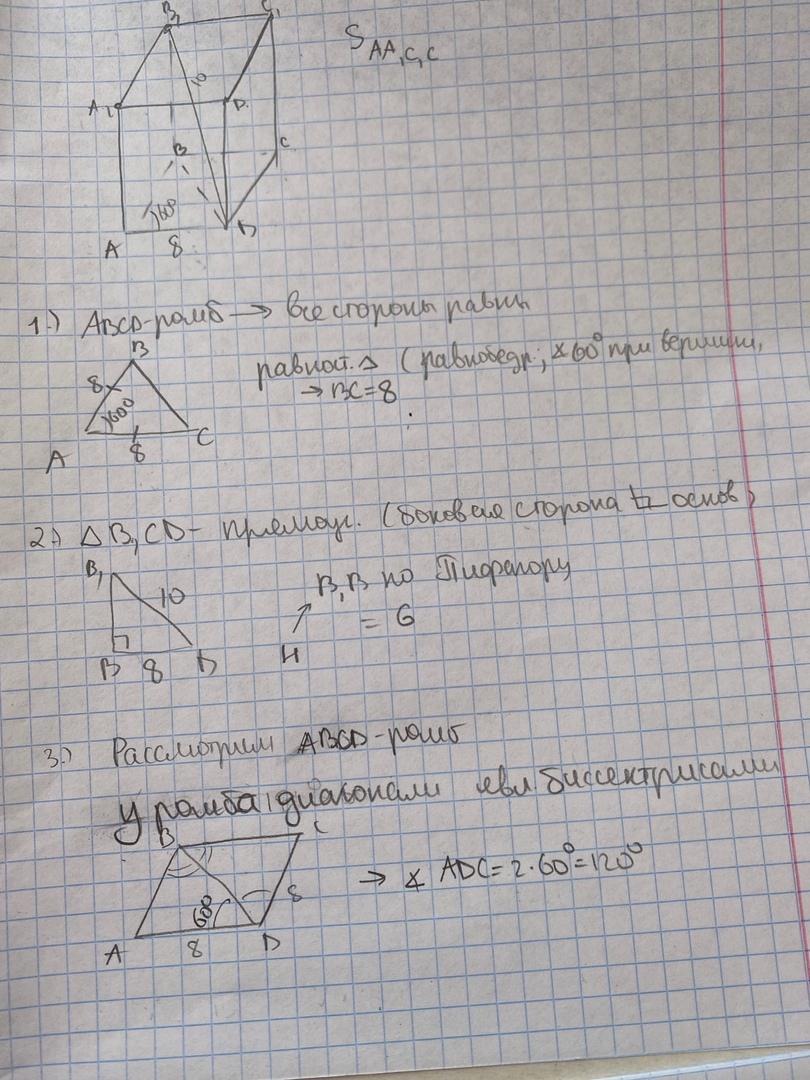 B₁ C₁
S AA₁C₁C
10
A₁ D₁
B C
60°
A 8 D
1.) ABCD-ромб → все стороны равны
B
равност. △ (равнобедр; ∡60° при вершине,
8 → BC=8
60°
A 8 C
2.) △ B₁CD - прямоуг. (боковая сторона ⊥ основ)
B₁
10 B₁B по Пифагору
= 6
H
B 8 D
3.) Рассмотрим ABCD-ромб
У ромба диагонали явл. биссектрисами
B C
→ ∡ ADC = 2·60°=120°
60° 8
A 8 D